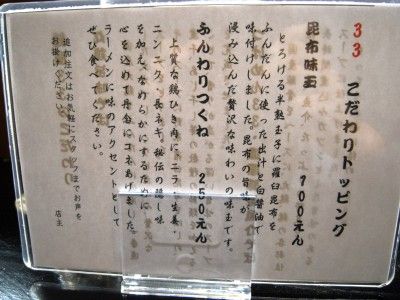 33 こだわりトッピング
昆布味玉 100えん
とろける半熟玉子に羅臼昆布を
ふんだんに使った出汁と白醤油で
味付けしました。昆布の旨味が
浸み込んだ贅沢な味わいの味玉です。
ふんわりつくね 250えん
上質な鶏ひき肉にニラ、生姜、
ニンニク、長ネギ、秘伝の隠し味
を加え、なめらかにするために
心を込めて丹念にコネあげました。
ラーメンに味のアクセントとして
ぜひ食べてください。
追加注文はお気軽にスタッフまでお声を
お掛けください。
店主